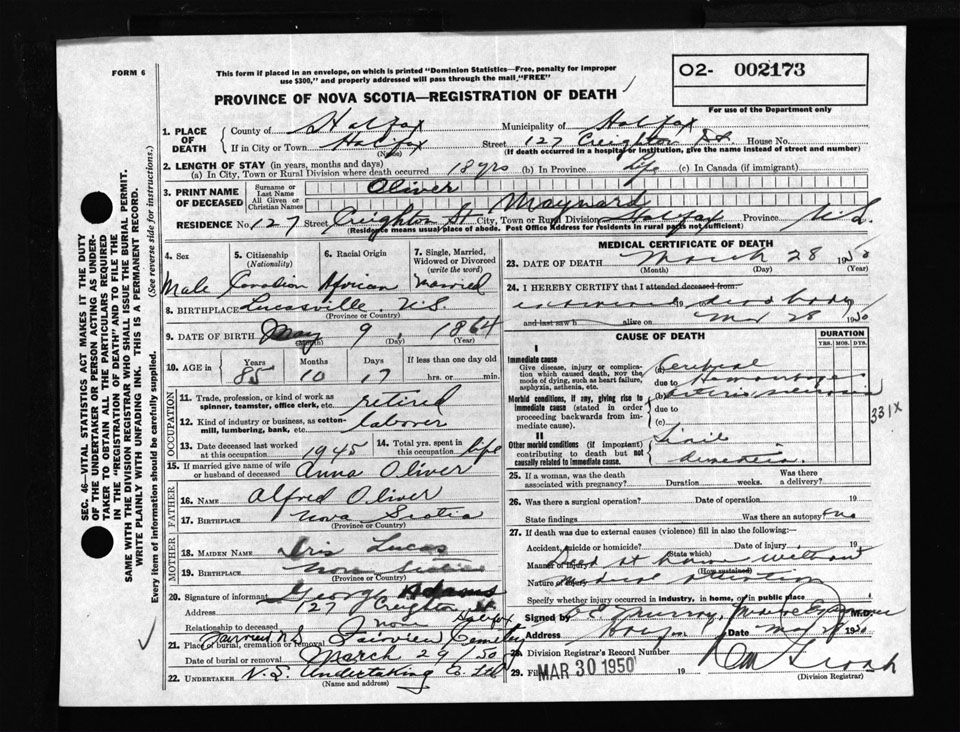 FORM 6
This form if placed in an envelope, on which is printed "Dominion Statistics—Free, penalty for improper
use $300," and properly addressed will pass through the mail "FREE"
O2- 002173
For use of the Department only
PROVINCE OF NOVA SCOTIA—REGISTRATION OF DEATH
1. PLACE OF DEATH
County of Halifax Municipality of Halifax
If in City or Town Halifax Street 127 Creighton St. House No.
(Name) (If death occurred in a hospital or institution, give the name instead of street and number)
2. LENGTH OF STAY (in years, months and days)
(a) In City, Town or Rural Division where death occurred 18 yrs (b) In Province Life (c) In Canada (if immigrant)
3. PRINT NAME OF DECEASED
Surname or Last Name Oliver
All Given or Christian Names Maynard
RESIDENCE No. 127 Street Creighton St City, Town or Rural Division Halifax Province N.S.
(Residence means usual place of abode. Post Office Address for residents in rural parts not sufficient)
4. Sex
Male
5. Citizenship
(Nationality)
Canadian
6. Racial Origin
African
7. Single, Married,
Widowed or Divorced
(write the word)
Married
8. BIRTHPLACE Lucasville, N.S.
(Province or Country)
9. DATE OF BIRTH May 9, 1864
(Month) (Day) (Year)
10. AGE in
Years Months Days If less than one day old
85 10 17 hrs. or min.
OCCUPATION
11. Trade, profession, or kind of work as
spinner, teamster, office clerk, etc. retired
12. Kind of industry or business, as cotton-
mill, lumbering, bank, etc. laborer
13. Date deceased last worked
at this occupation 1945
14. Total yrs. spent in
this occupation life
15. If married give name of wife
or husband of deceased Anna Oliver
FATHER
16. NAME Alfred Oliver
17. BIRTHPLACE Nova Scotia
(Province or Country)
MOTHER
18. MAIDEN NAME Iris Lucas
19. BIRTHPLACE Nova Scotia
(Province or Country)
20. Signature of informant George Adams
Address 127 Creighton St Halifax
Relationship to deceased none
21. Place of burial, cremation or removal Fairview N.S Fairview Cemetery
Date of burial or removal March 29/50
22. UNDERTAKER N.S. Undertaking Co. Ltd
(Name and address)
MEDICAL CERTIFICATE OF DEATH
23. DATE OF DEATH March 28 1950
(Month) (Day) (Year)
24. I HEREBY CERTIFY that I attended deceased from:
19 dead body
and last saw h alive on Mar 28 1950
CAUSE OF DEATH
DURATION
YRS. MOS. DYS.
I
Immediate cause
Give disease, injury or complica-
tion which caused death, NOT the
mode of dying, such as heart failure,
asphyxia, asthenia, etc.
Cerebral
due to Hemorrhage
Morbid conditions, if any, giving rise to
immediate cause (stated in order
proceeding backwards from im-
mediate cause).
due to
(c)
331X
II
Other morbid conditions (if important)
contributing to death but not
causally related to immediate cause.
25. If a woman, was the death
associated with pregnancy? Duration weeks. Was there
a delivery?
26. Was there a surgical operation? Date of operation 19
State findings Was there an autopsy
27. If death was due to external causes (violence) fill in also the following:—
Accident, suicide or homicide? Date of injury 19
(State which)
Manner of injury Died at home without
(How sustained)
Nature of injury medical attention
Specify whether injury occurred in industry, in home, or in public place
Signed by Murray, M.D.
Address Date Mar 29 1950
28. Division Registrar's Record Number
29. Filed MAR 30 1950 19
(Division Registrar)
SEC. 46—VITAL STATISTICS ACT MAKES IT THE DUTY
OF THE UNDERTAKER OR PERSON ACTING AS UNDER-
TAKER TO OBTAIN ALL THE PARTICULARS REQUIRED
IN THE "REGISTRATION OF DEATH" AND TO FILE THE
SAME WITH THE DIVISION REGISTRAR WHO SHALL ISSUE THE BURIAL PERMIT.
WRITE PLAINLY WITH UNFADING INK. THIS IS A PERMANENT RECORD.
Every item of information should be carefully supplied. (See reverse side for instructions.)